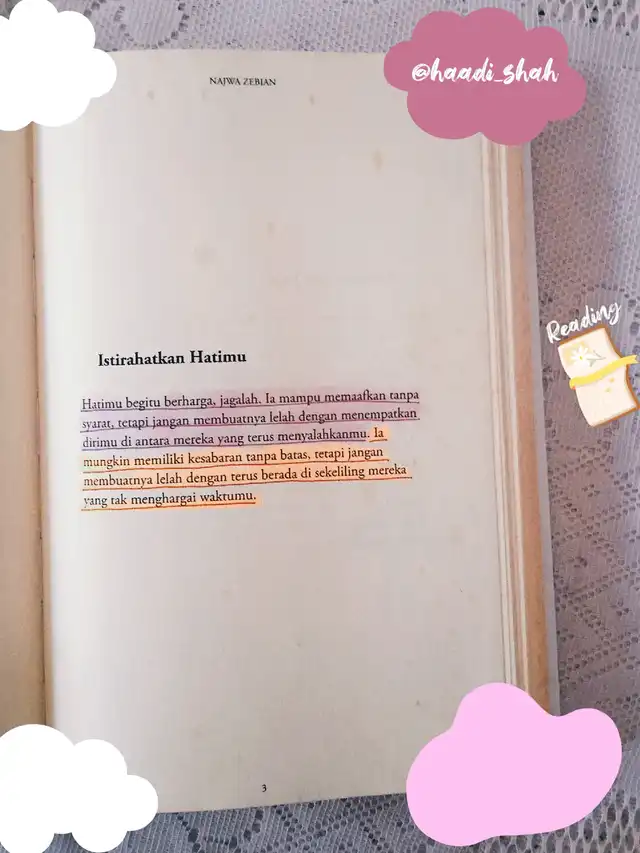 NAJWA ZEBIAN
@haadi_shah
Reading
Istirahatkan Hatimu
Hatimu begitu berharga, jagalah. Ia mampu memaafkan tanpa
syarat, tetapi jangan membuatnya lelah dengan menempatkan
dirimu di antara mereka yang terus menyalahkanmu. Ia
mungkin memiliki kesabaran tanpa batas, tetapi jangan
membuatnya lelah dengan terus berada di sekeliling mereka
yang tak menghargai waktumu.
3